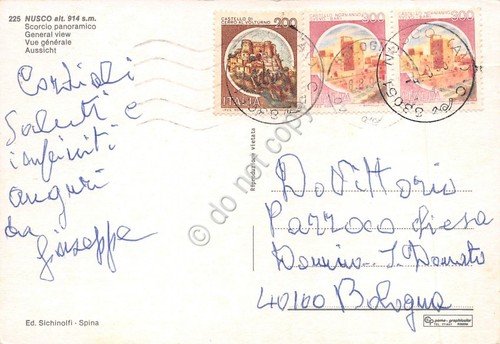 225 NUSCO alt. 914 s.m.
Scorcio panoramico
General view
Vue générale
Aussicht
Cordiali
Saluti e
infiniti
auguri
da
Giuseppe
Ed. Sichinolfi - Spina
Riproduzione vietata
CASTELLO DI
CERRO AL VOLTURNO
200
ITALIA
300
ITALIA
300
ITALIA
do not copy
Do Vittorio
Parroco Chiesa
Domino S. Donato
40100 Bologna